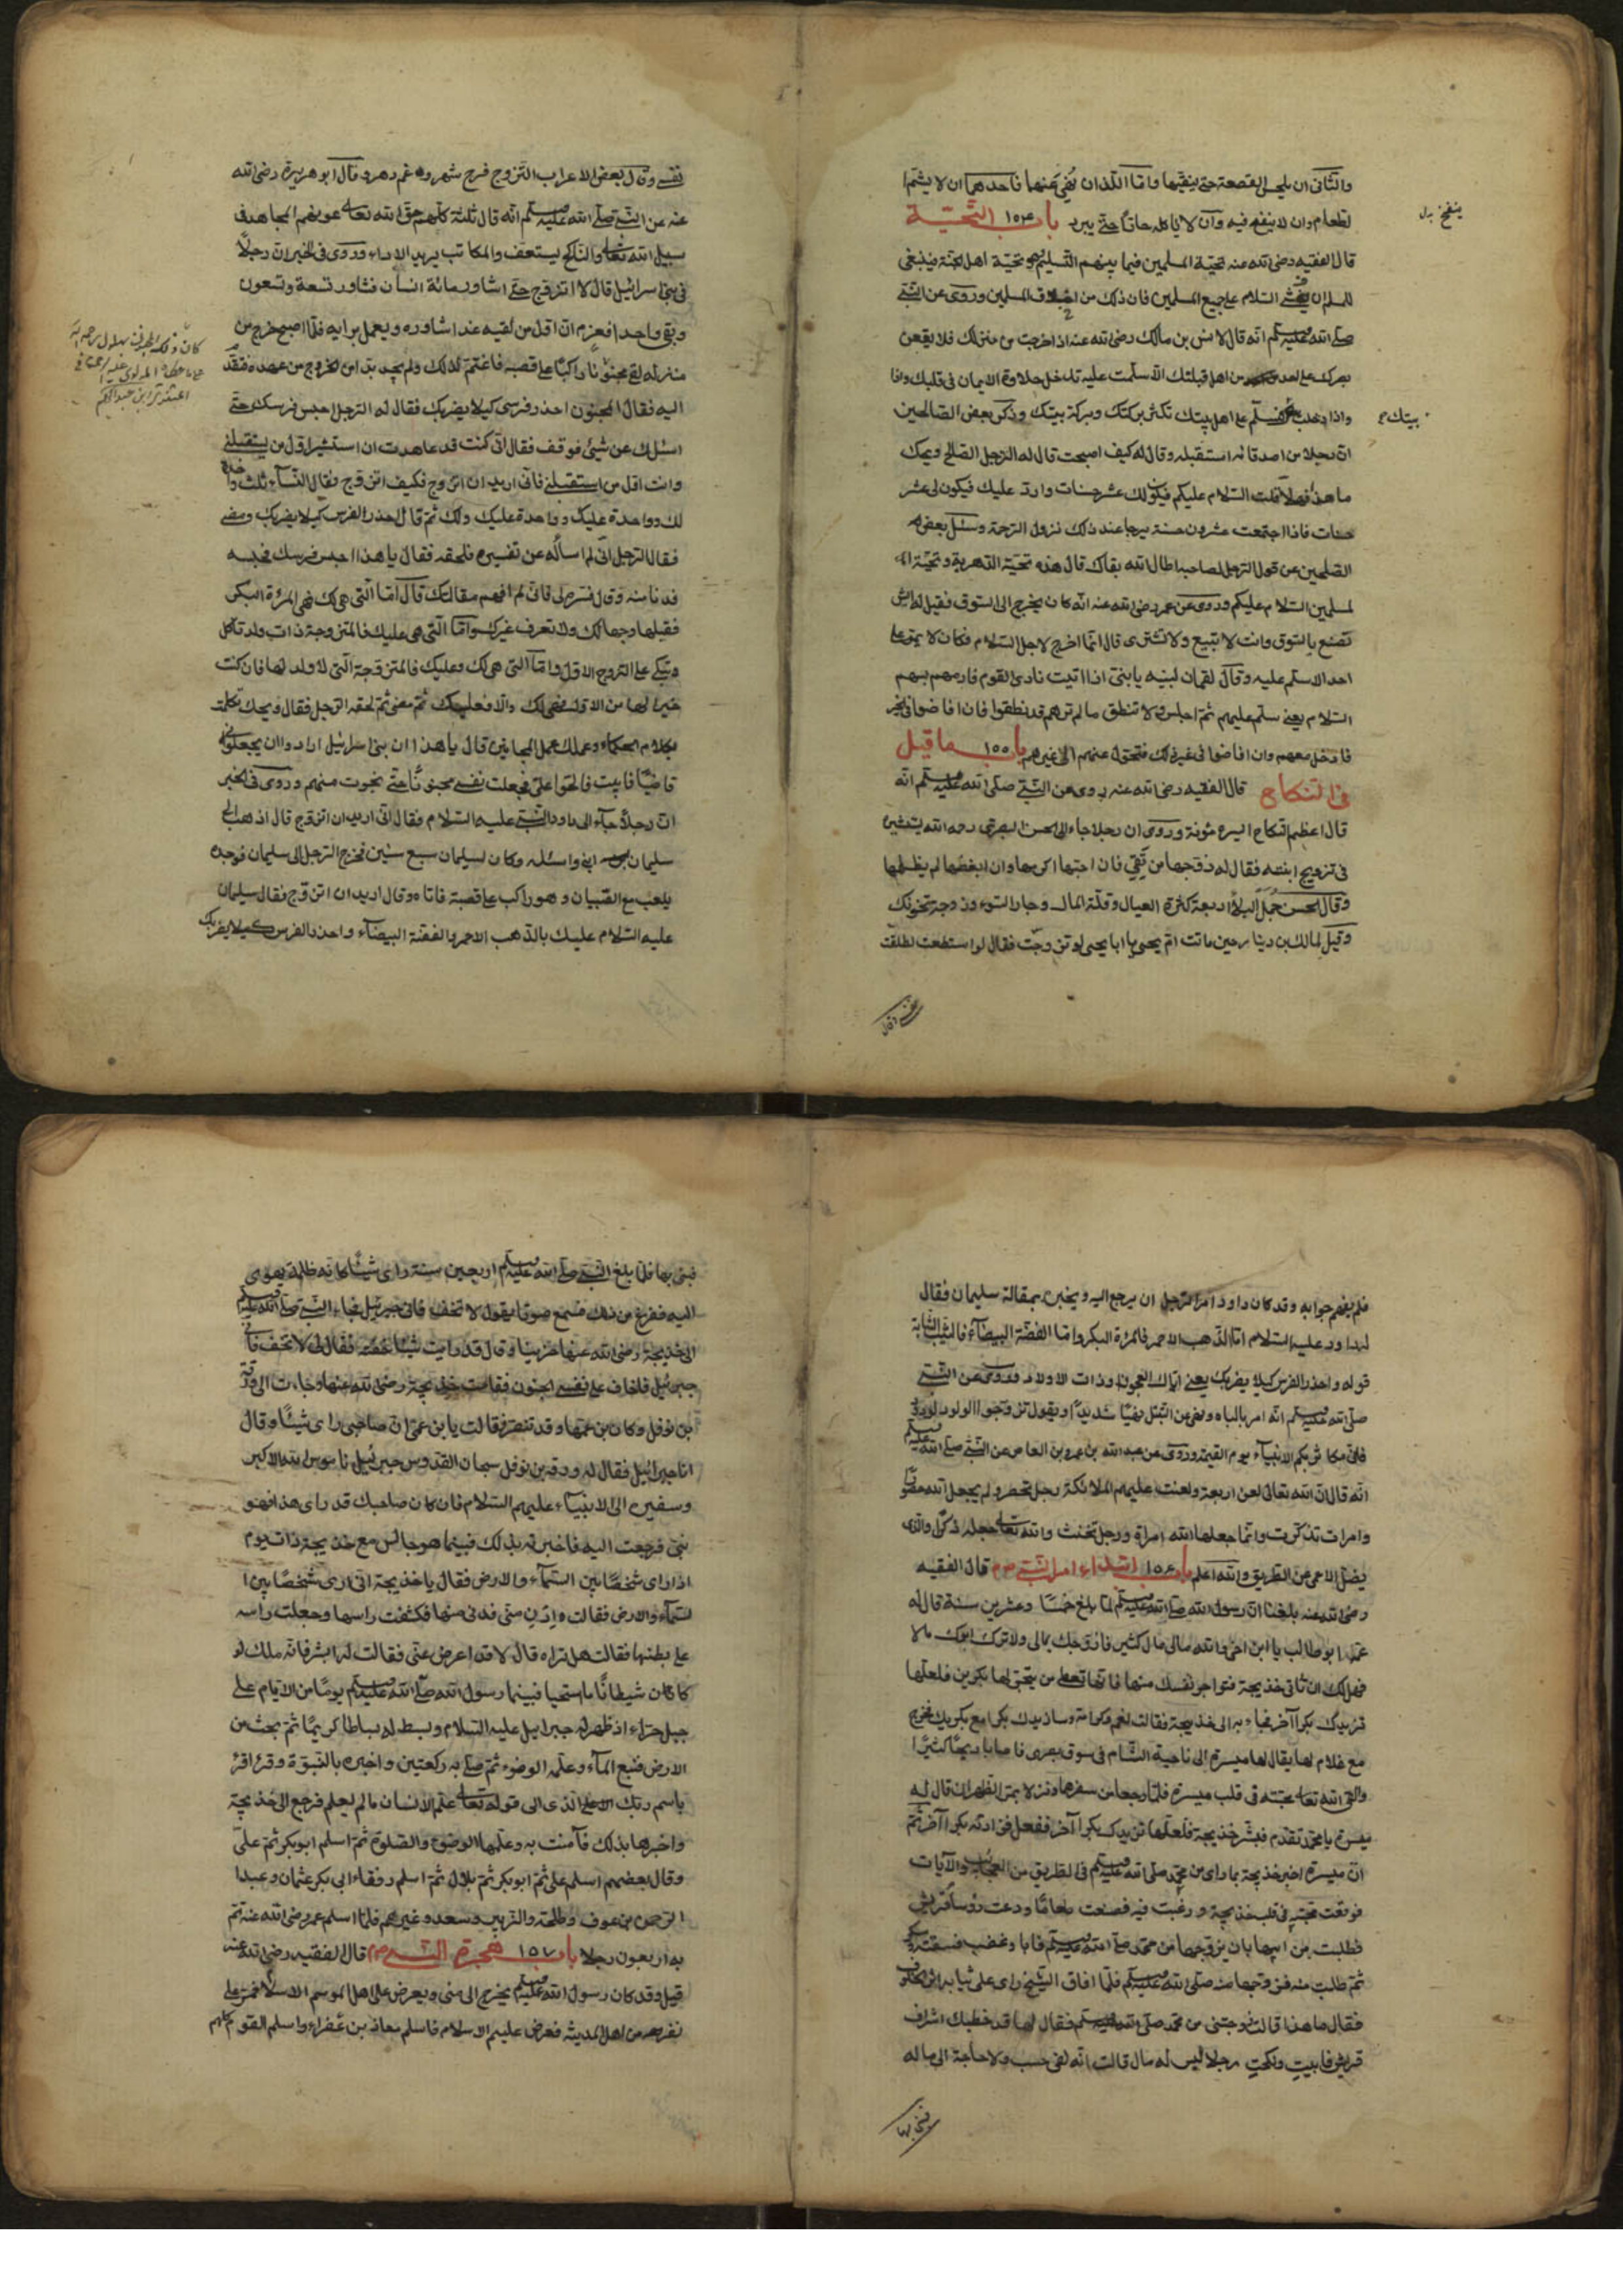 والثانى ان يلحس القصعة حتى ينقيها واما اللذان نُهِىَ عنهما فاحدهما ان لا يشم ا
لطعام وان لا ينفخ فيه وان لا ياكله حارًا حتى يبرد باب ١٥٤ التحيّة
ينفخ بدل
قال الفقيه رضى الله عنه تحيّة المسلمين فيما بينهم التسليم وهو تحيّة اهل الجنة فينبغى
للمسلم ان يفشى السلام على جميع المسلمين فان ذلك من اخلاق المسلمين وروى عن النبى
صلى الله عليه وسلم انه قال لانس بن مالك رضى الله عنه اذا خرجت من منزلك فلا يقعن
بصرك على احد من اهل قبلتك الا سلّمت عليه تدخل حلاوة الايمان فى قلبك واذا
واذا دخلت فسلّم على اهل بيتك تكثر بركتك وبركة بيتك وذكر بعض الصالحين
بيتك
ان رجلا من اصدقائه استقبله وقال له كيف اصبحت قال له الرجل الصالح ويحك
ما هذا فهلا قلت السلام عليكم فيكون لك عشر حسنات وارد عليك فيكون لى عشر
حسنات فاذا اجتمعت عشرون حسنة يرجا عند ذلك نزول الرحمة وسئل بعض
الصلحين عن قول الرجل لصاحبه اطال الله بقاك قال هذه تحيّة الدهرية وتحيّة ا
لمسلمين السلام عليكم وروى عن عمر رضى الله عنه انّه كان يخرج الى السوق فقيل له اىش
تصنع بالسوق وانت لا تبيع ولا تشترى قال انما اخرج لاجل السلام فكان لا يمرّ على
احد الا سلم عليه وقال لقمان لبنيه يا بنىّ اذا اتيت نادى القوم فارمهم بسهم
السلام يعنى سلّم عليهم ثم اجلس ولا تنطق ما لم ترهم قد نطقوا فان افاضوا فى خير
فادخل معهم وان افاضوا فى غير ذلك فتحول عنهم الى غيرهم باب ١٥٥ ما قيل
فى النكاح قال الفقيه رضى الله عنه روى عن النبى صلى الله عليه وسلم انّه
قال اعظم النكاح ايسره مئونة وروى ان رجلا جاء الى الحسن البصرى رحمه الله يستشيره
فى تزويج ابنته فقال له زوّجها من تقى فان احبها اكرمها وان ابغضها لم يظلمها
وقال الحسن جُمَلُ البلاء اربعة كثرة العيال وقلّة المال وجار السوء وزوجة تخونك
وقيل لمالك بن دينار حين ماتت امّ يحيى يا ابا يحيى لو تزوجت فقال لو استطعت لطلقت
نفسى وقال
نفسى وقال بعض الاعراب التزوج فرح شهر وغم دهر وقال ابو هريرة رضى الله
عنه عن النبى صلى الله عليه وسلم انه قال ثلثة كلهم حق الله تعالى عونهم المجاهد فى
سبيل الله تعالى والناكح ليستعفف والمكاتب يريد الاداء وروى فى الخبر ان رجلاً
فى بنى اسرائيل قال لا اتزوج حتى اشاور مائة انسان فشاور تسعة وتسعون
وبقى واحد فعزم ان اول من لقيه غدا شاوره ويعمل برايه فلما اصبح خرج من
منزله لقى مجنونًا راكبًا على قصبة فاغتمّ لذلك ولم يجد بدا من الخروج من عهده فتقدّم
اليه فقال المجنون احذر فرسى كيلا يضربك فقال له الرجل احبس فرسك حتى
اسئلك عن شىء فوقف فقال انى كنت قد عاهدت ان استشير اول من يستقبلنى
وانت اول من استقبلنى فانى اريد ان اتزوج فكيف اتزوج فقال النساء ثلث واحدة
لك وواحدة عليك وواحدة عليك ولك ثم قال احذر الفرس كيلا يضربك ومضى
فقال الرجل انى لم اساله عن تفسيره فلحقه فقال يا هذا احبس فرسك فحبسه
فدنا منه وقال فسّره لى فانى لم افهم مقالتك قال اما التى هى لك فهى المرءة البكر
فقلبها وحبها لك ولا تعرف غيرك واما التى هى عليك فالمتزوجة ذات ولد تاكل
وتبكى على الزوج الاول واما التى هى لك وعليك فالمتزوجة التى لا ولد لها فان كنت
خيرا لها من الاول فهى لك والا فعليك ثم مضى ثم لحقه الرجل فقال ويحك تكلمت
بكلام الحكماء وعملك عمل المجانين قال يا هذا ان بنى اسرائيل ارادوا ان يجعلونى
قاضيًا فابيت فالحّوا علىّ فجعلت نفسى مجنونًا حتى نجوت منهم وروى فى الخبر
انّ رجلاً جاء الى داود النبى عليه السلام فقال انى اريد ان اتزوج قال اذهب الى
سليمان ابنى واسئله وكان لسليمان سبع سنين فخرج الرجل الى سليمان فوجده
يلعب مع الصبيان وهو راكب على قصبة فاتاه وقال اريد ان اتزوج فقال سليمان
عليه السلام عليك بالذهب الاحمر والفضة البيضاء واحذر الفرس كيلا يضربك
فلم يفهم جوابه وقد كان داود امر الرجل ان يرجع اليه ويخبره بمقالة سليمان فقال
له داود عليه السلام اما الذهب الاحمر فالمرءة البكر واما الفضة البيضاء فالثيب الشابة
قوله واحذر الفرس كيلا يضربك يعنى ايّاك العجوز وذات الاولاد وروى عن النبى
صلى الله عليه وسلم انّه امر بالباه ونهى عن التبتل نهيًا شديدًا ويقول تزوجوا الولود الودود
فانى مكاثر بكم الانبياء يوم القيمة وروى عن عبد الله بن عمرو بن العاص عن النبى صلى الله عليه وسلم
انّه قال ان الله تعالى لعن اربعة ولعنت عليهم الملائكة رجل تحصر ولم يجعل الله حصورًا
وامراة تذكرت وانما جعلها الله امراة ورجل تخنث والله تعالى جعله ذكرًا والذى
يضل الاعمى عن الطريق والله اعلم باب ١٥٦ ابتداء امر النبى صم قال الفقيه
رضى الله عنه بلغنا ان رسول الله صلى الله عليه وسلم لما بلغ خمسًا وعشرين سنة قال له
عمه ابو طالب يا ابن اخى والله مالى مال كثير فازوجك بمالى ولا ترك ابوك مالا
فهل لك ان تاتى خديجة فتواجر نفسك منها فانها تعطى من يتجر لها بكرين فلعلها
تزيدك بكرا آخر فجاء به الى خديجة فقالت نعم وكرامة وسازيدك بكرا مع بكريك فخرج
مع غلام لها يقال لها ميسرة الى ناحية الشام فى سوق بصرى فاصابا ربحًا كثيرًا
والقى الله تعالى محبته فى قلب ميسرة فلما رجعا من سفرهما ونزلا بمر الظهران قال له
ميسرة يا محمد تقدم فبشر خديجة فلعلّها تزيدك بكرا آخر ففعل فزادته بكرا آخر ثم
انّ ميسرة اخبر خديجة بما راى من محمد صلى الله عليه وسلم فى الطريق من العجائب والآيات
فوقعت محبته فى قلب خديجة ورغبت فيه فصنعت طعامًا ودعت رؤساء قريش
فطلبت من ابيها بان يزوجها من محمد صلى الله عليه وسلم فابا وغضب فسقته
ثم طلبت منه فزوجها منه صلى الله عليه وسلم فلما افاق الشيخ راى على ثيابه اثر الخلوق
فقال ما هذا قالت زوجتنى من محمد صلى الله عليه وسلم فقال لها قد خطبك اشراف
قريش فابيت ونكحت رجلا ليس له مال قالت انّه لفى حسب ولا حاجة الى ماله
فبنى بها
فبنى بها فلما بلغ النبى صلى الله عليه وسلم اربعين سنة راى شيئًا كانه ظلمة يهوى
اليه ففزع من ذلك فسمع صوتا يقول لا تخف فانى جبرئيل فجاء النبى صلى الله عليه وسلم
الى خديجة رضى الله عنها حزينا وقال قد رايت شيئًا فقال لى لا تخف فانى
جبرئيل فاخاف على نفسى الجنون فقامت خديجة رضى الله عنها وجاءت الى ورقة
بن نوفل وكان بن عمها وقد تنصّر فقالت يا بن عمى ان صاحبى راى شيئًا وقال
انا جبرائيل فقال له ورقه بن نوفل سبحان القدوس جبرئيل ناموس الله الاكبر
وسفيره الى الانبياء عليهم السلام فان كان صاحبك قد راى هذا فهو
نبى فرجعت اليه فاخبرته بذلك فبينما هو جالس مع خديجة ذات يوم
اذا راى شخصًا بين السماء والارض فقال يا خديجة انى ارى شخصًا بين ا
لسماء والارض فقالت ادن منى فدنى منها فكشفت راسها وجعلت راسه
على بطنها فقالت هل تراه قال لا قد اعرض عنّى فقالت له ابشر فانّه ملك لو
كان شيطانًا ما استحيا فبينما رسول الله صلى الله عليه وسلم يومًا من الايام على
جبل حراء اذ ظهر له جبرايل عليه السلام وبسط له بساطا كريمًا ثم بحث من
الارض فنبع الماء وعلمه الوضوء ثم صلى به ركعتين واخبره بالنبوة وقرءا اقرأ
باسم ربك الذى الى قوله تعالى علّم الانسان ما لم يعلم فرجع الى خديجة
واخبرها بذلك فآمنت به وعلمها الوضوء والصلوة ثم اسلم ابو بكر ثم علىّ
وقال بعضهم اسلم على ثم ابو بكر ثم بلال ثم اسلم رفقاء ابى بكر عثمان وعبد ا
لرحمن بن عوف وطلحة والزبير وسعد وغيرهم فلما اسلم عمر رضى الله عنه تمّ
به اربعون رجلا باب ١٥٧ هجرة النبى صم قال الفقيه رضى الله عنه
قيل وقد كان رسول الله صلى الله عليه وسلم يخرج الى منى ويعرض على اهل الموسم الاسلام فمرّ على
نفر من اهل المدينة فعرض عليهم الاسلام فاسلم معاذ بن عفراء واسلم القوم كلهم